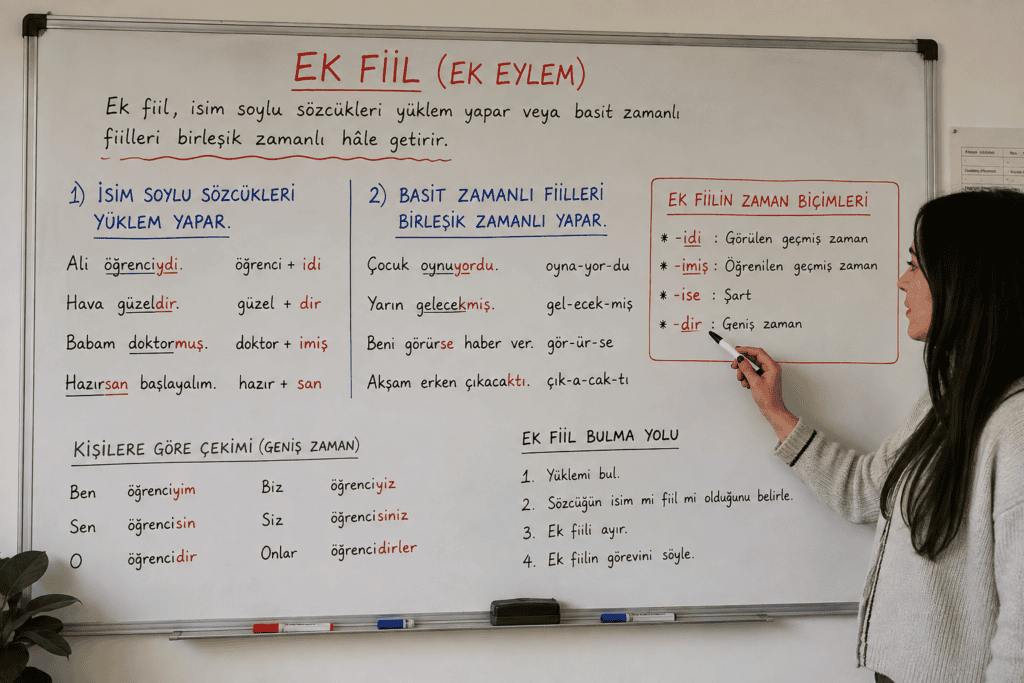 EK FİİL (EK EYLEM)
Ek fiil, isim soylu sözcükleri yüklem yapar veya basit zamanlı
fiilleri birleşik zamanlı hâle getirir.
1) İSİM SOYLU SÖZCÜKLERİ
YÜKLEM YAPAR.
Ali öğrenciydi. öğrenci + idi
Hava güzeldir. güzel + dir
Babam doktormuş. doktor + imiş
Hazırsan başlayalım. hazır + san
2) BASİT ZAMANLI FİİLLERİ
BİRLEŞİK ZAMANLI YAPAR.
Çocuk oynuyordu. oyna-yor-du
Yarın gelecekmiş. gel-ecek-miş
Beni görürse haber ver. gör-ür-se
Akşam erken çıkacaktı. çık-a-cak-tı
EK FİİLİN ZAMAN BİÇİMLERİ
* -idi : Görülen geçmiş zaman
* -imiş : Öğrenilen geçmiş zaman
* -ise : Şart
* -dir : Geniş zaman
KİŞİLERE GÖRE ÇEKİMİ (GENİŞ ZAMAN)
Ben öğrenciyim Biz öğrenciyiz
Sen öğrencisin Siz öğrencisiniz
O öğrencidir Onlar öğrencidirler
EK FİİL BULMA YOLU
1. Yüklemi bul.
2. Sözcüğün isim mi fiil mi olduğunu belirle.
3. Ek fiili ayır.
4. Ek fiilin görevini söyle.